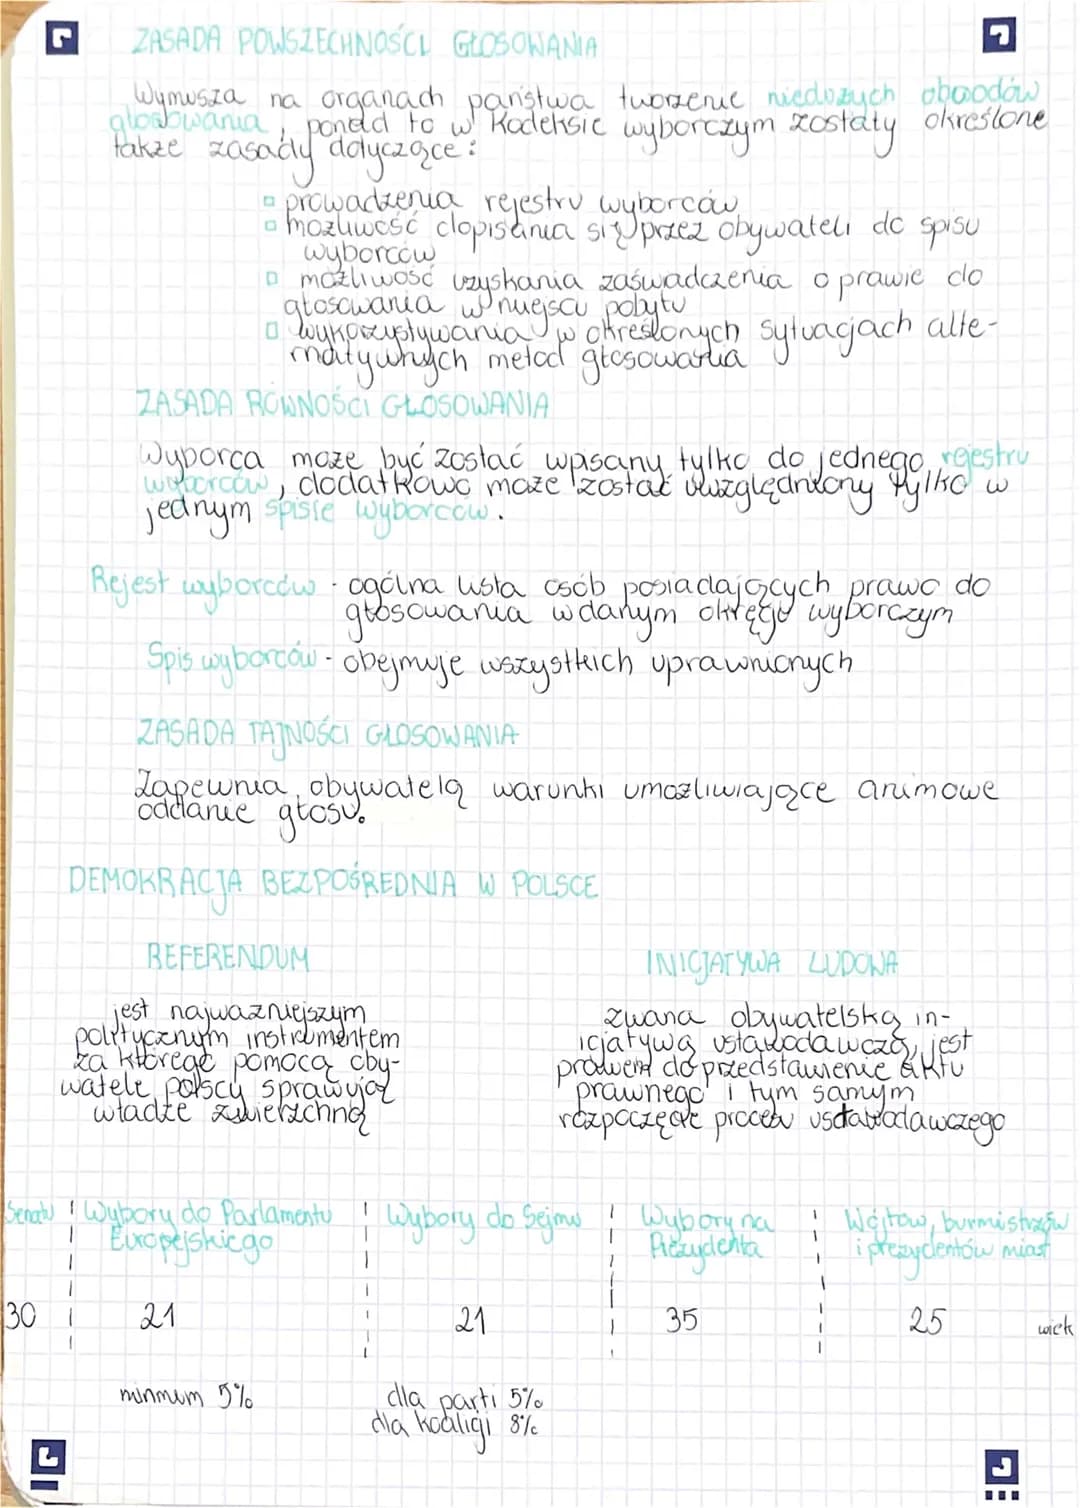 ZASADA POWSZECHNOŚCI GŁOSOWANIA
Wymusza na organach państwa tworzenie niedużych obwodów
głosowania, ponad to w Kodeksie wyborczym zostały określone
także zasady dotyczące:
prowadzenia rejestru wyborców
możliwość dopisania się przez obywateli do spisu
wyborców
możliwość uzyskania zaświadczenia o prawie do
głosowania w miejscu pobytu
wykorzystywania w określonych sytuacjach alte-
rnatywnych metod głosowania
ZASADA RÓWNOŚCI GŁOSOWANIA
Wyborca może być zostać wpisany tylko do jednego rejestru
wyborców, dodatkowo może zostać uwzględniony tylko w
jednym spisie wyborców.
Rejest wyborców - ogólna lista osób posiadających prawo do
głosowania w danym okręgu wyborczym
Spis wyborców - obejmuje wszystkich uprawnionych
ZASADA TAJNOŚCI GŁOSOWANIA
Zapewnia obywatelą warunki umożliwiające animowe
oddanie głosu.
DEMOKRACJA BEZPOŚREDNIA W POLSCE
REFERENDUM
jest najważniejszym
politycznym instrumentem
za którego pomocą oby-
watele polscy sprawują
władze zwierzchnią
INICJATYWA LUDOWA
zwana obywatelską in-
icjatywą ustawodawczą, jest
prawem do przedstawienie aktu
prawnego i tym samym
rozpoczęcie procesu ustawodawczego
Senatu | Wybory do Parlamentu | Wybory do Sejmu | Wybory na | Wójtów, burmistrzów
Europejskiego | Prezydenta | i prezydentów miast
30 | 21 | 21 | 35 | 25 wiek
minmum 5% dla parti 5%
dla koalicji 8%